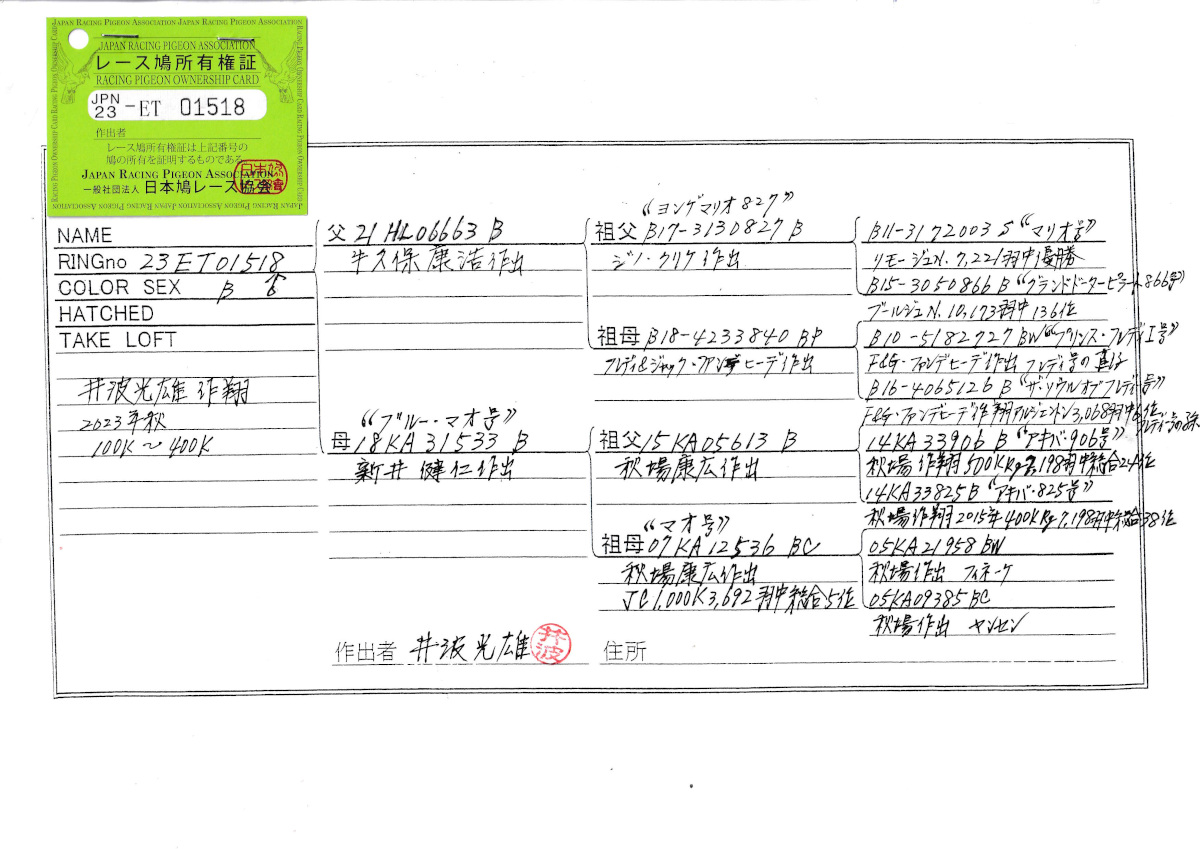 JAPAN RACING PIGEON ASSOCIATION JAPAN RACING PIGEON ASSOCIATION
JAPAN RACING PIGEON ASSOCIATION
レース鳩所有権証
RACING PIGEON OWNERSHIP CARD
JPN
23 -ET 01518
作出者
レース鳩所有権証は上記番号の
鳩の所有を証明するものである
JAPAN RACING PIGEON ASSOCIATION
一般社団法人 日本鳩レース協会
NAME
RINGno 23ET01518
COLOR SEX B ♂
HATCHED
TAKE LOFT
井波光雄 作翔
2023年秋
100K〜400K
父 21HL06663 B
牛久保康浩作出
《ブルー・マオ号》
母 18KA31533 B
新井健仁作出
《ヨングマリオ827》
祖父 B17-3130827 B
ジノ・クリケ作出
祖母 B18-4233840 BP
フレディ&ジャック・ファンデヒーデ作出
祖父 15KA05613 B
秋場康広作出
《マオ号》
祖母 07KA12536 BC
秋場康広作出
JC1,000K3,692羽中総合5位
B11-3172003 S《マリオ号》
リモージュN.7,221羽中優勝
B15-3050866 B《グランドドーターピラート866号》
ブールジュN.10,173羽中136位
B10-5182727 BW《プリンス・フレディI号》
F&G・ファンデヒーデ作出 フレディ号の直仔
B16-4065126 B《ザ・ソウルオブフレディ号》
F&G・ファンデヒーデ作翔アルジェントン3,068羽中6位
フレディ号の孫
14KA33906 B《アキバ・906号》
秋場作翔500KKg7,198羽中総合24位
14KA33825B《アキバ・825号》
秋場作翔2015年400KRg7,198羽中総合38位
05KA21958 BW
秋場作出 フィネーケ
05KA09385 BC
秋場作出 ヤンセン
作出者 井波光雄 井波
住所